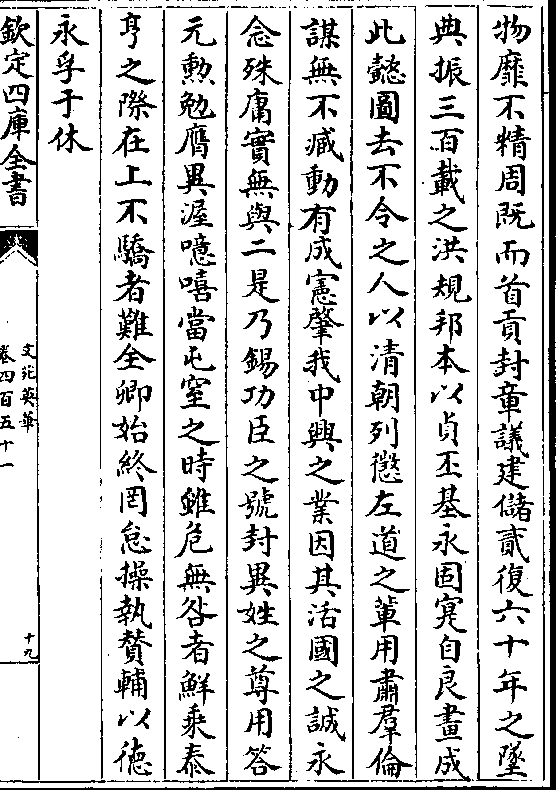 物靡不精周既而首貢封章議建儲貳復六十年之墜
典振三百載之洪規邦本以貞丕基永固寔自良畫成
此懿圖去不令之人以清朝列懲左道之輩用肅羣倫
謀無不臧動有成憲肇我中興之業因其活國之誠永
念殊庸實無與二是乃錫功臣之號封異姓之尊用答
元勲勉膺異渥噫嘻當屯窒之時雖危無咎者鮮乘泰
亨之際在上不驕者難全卿始終罔怠操執賛輔以德
永孚于休
欽定四庫全書
文苑英華
卷四百五十一
十九